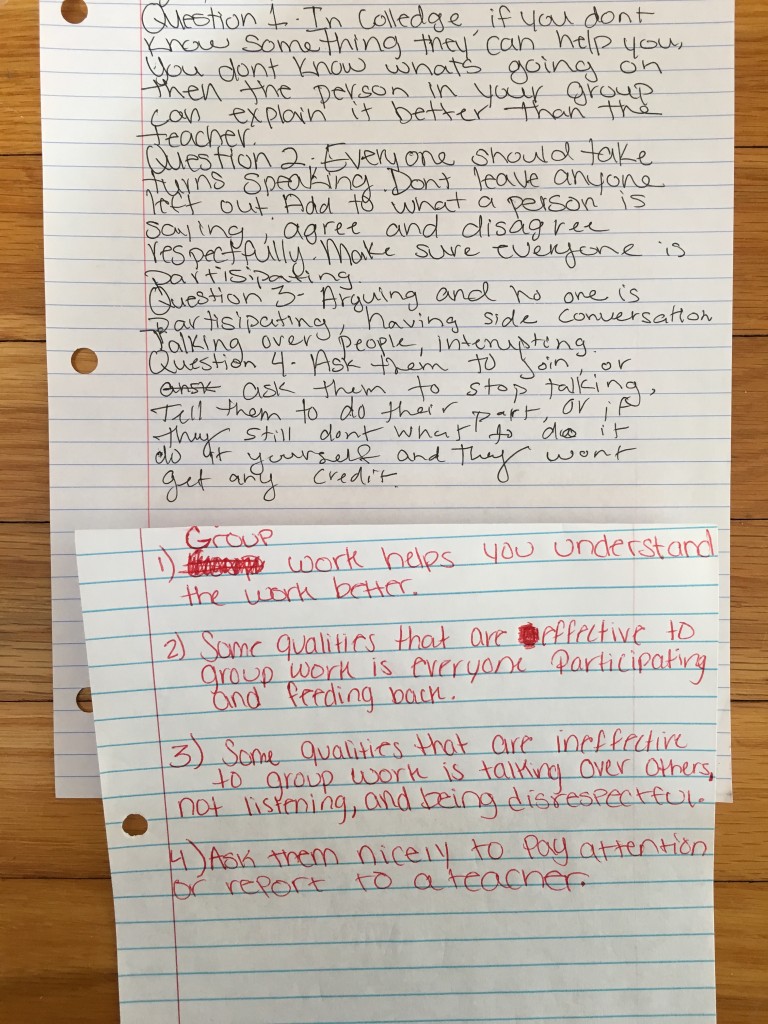 Question 1. In Colledge, if you dont
know something they can help you,
You dont know whats going on
then the person in your group
can explain it better than the
teacher.
Question 2. Everyone should take
turns speaking. Dont leave anyone
left out Add to what a person is
saying, agree and disagree
respectfully. Make sure everyone is
partisipating.
Question 3- Arguing and no one is
partisipating, having side conversation
Talking over people, interrupting.
Question 4- Ask them to join, or
ansk ask them to stop talking,
Tell them to do their part, or if
they still dont what to do it
do it yourself and they wont
get any credit.
Group
1) work helps you understand
the work better.
2) Some qualities that are effective to
group work is everyone Participating
and feeding back.
3) Some qualities that are ineffective
to group work is talking over others,
not listening, and being disrespectful.
4) Ask them nicely to pay attention
or report to a teacher.